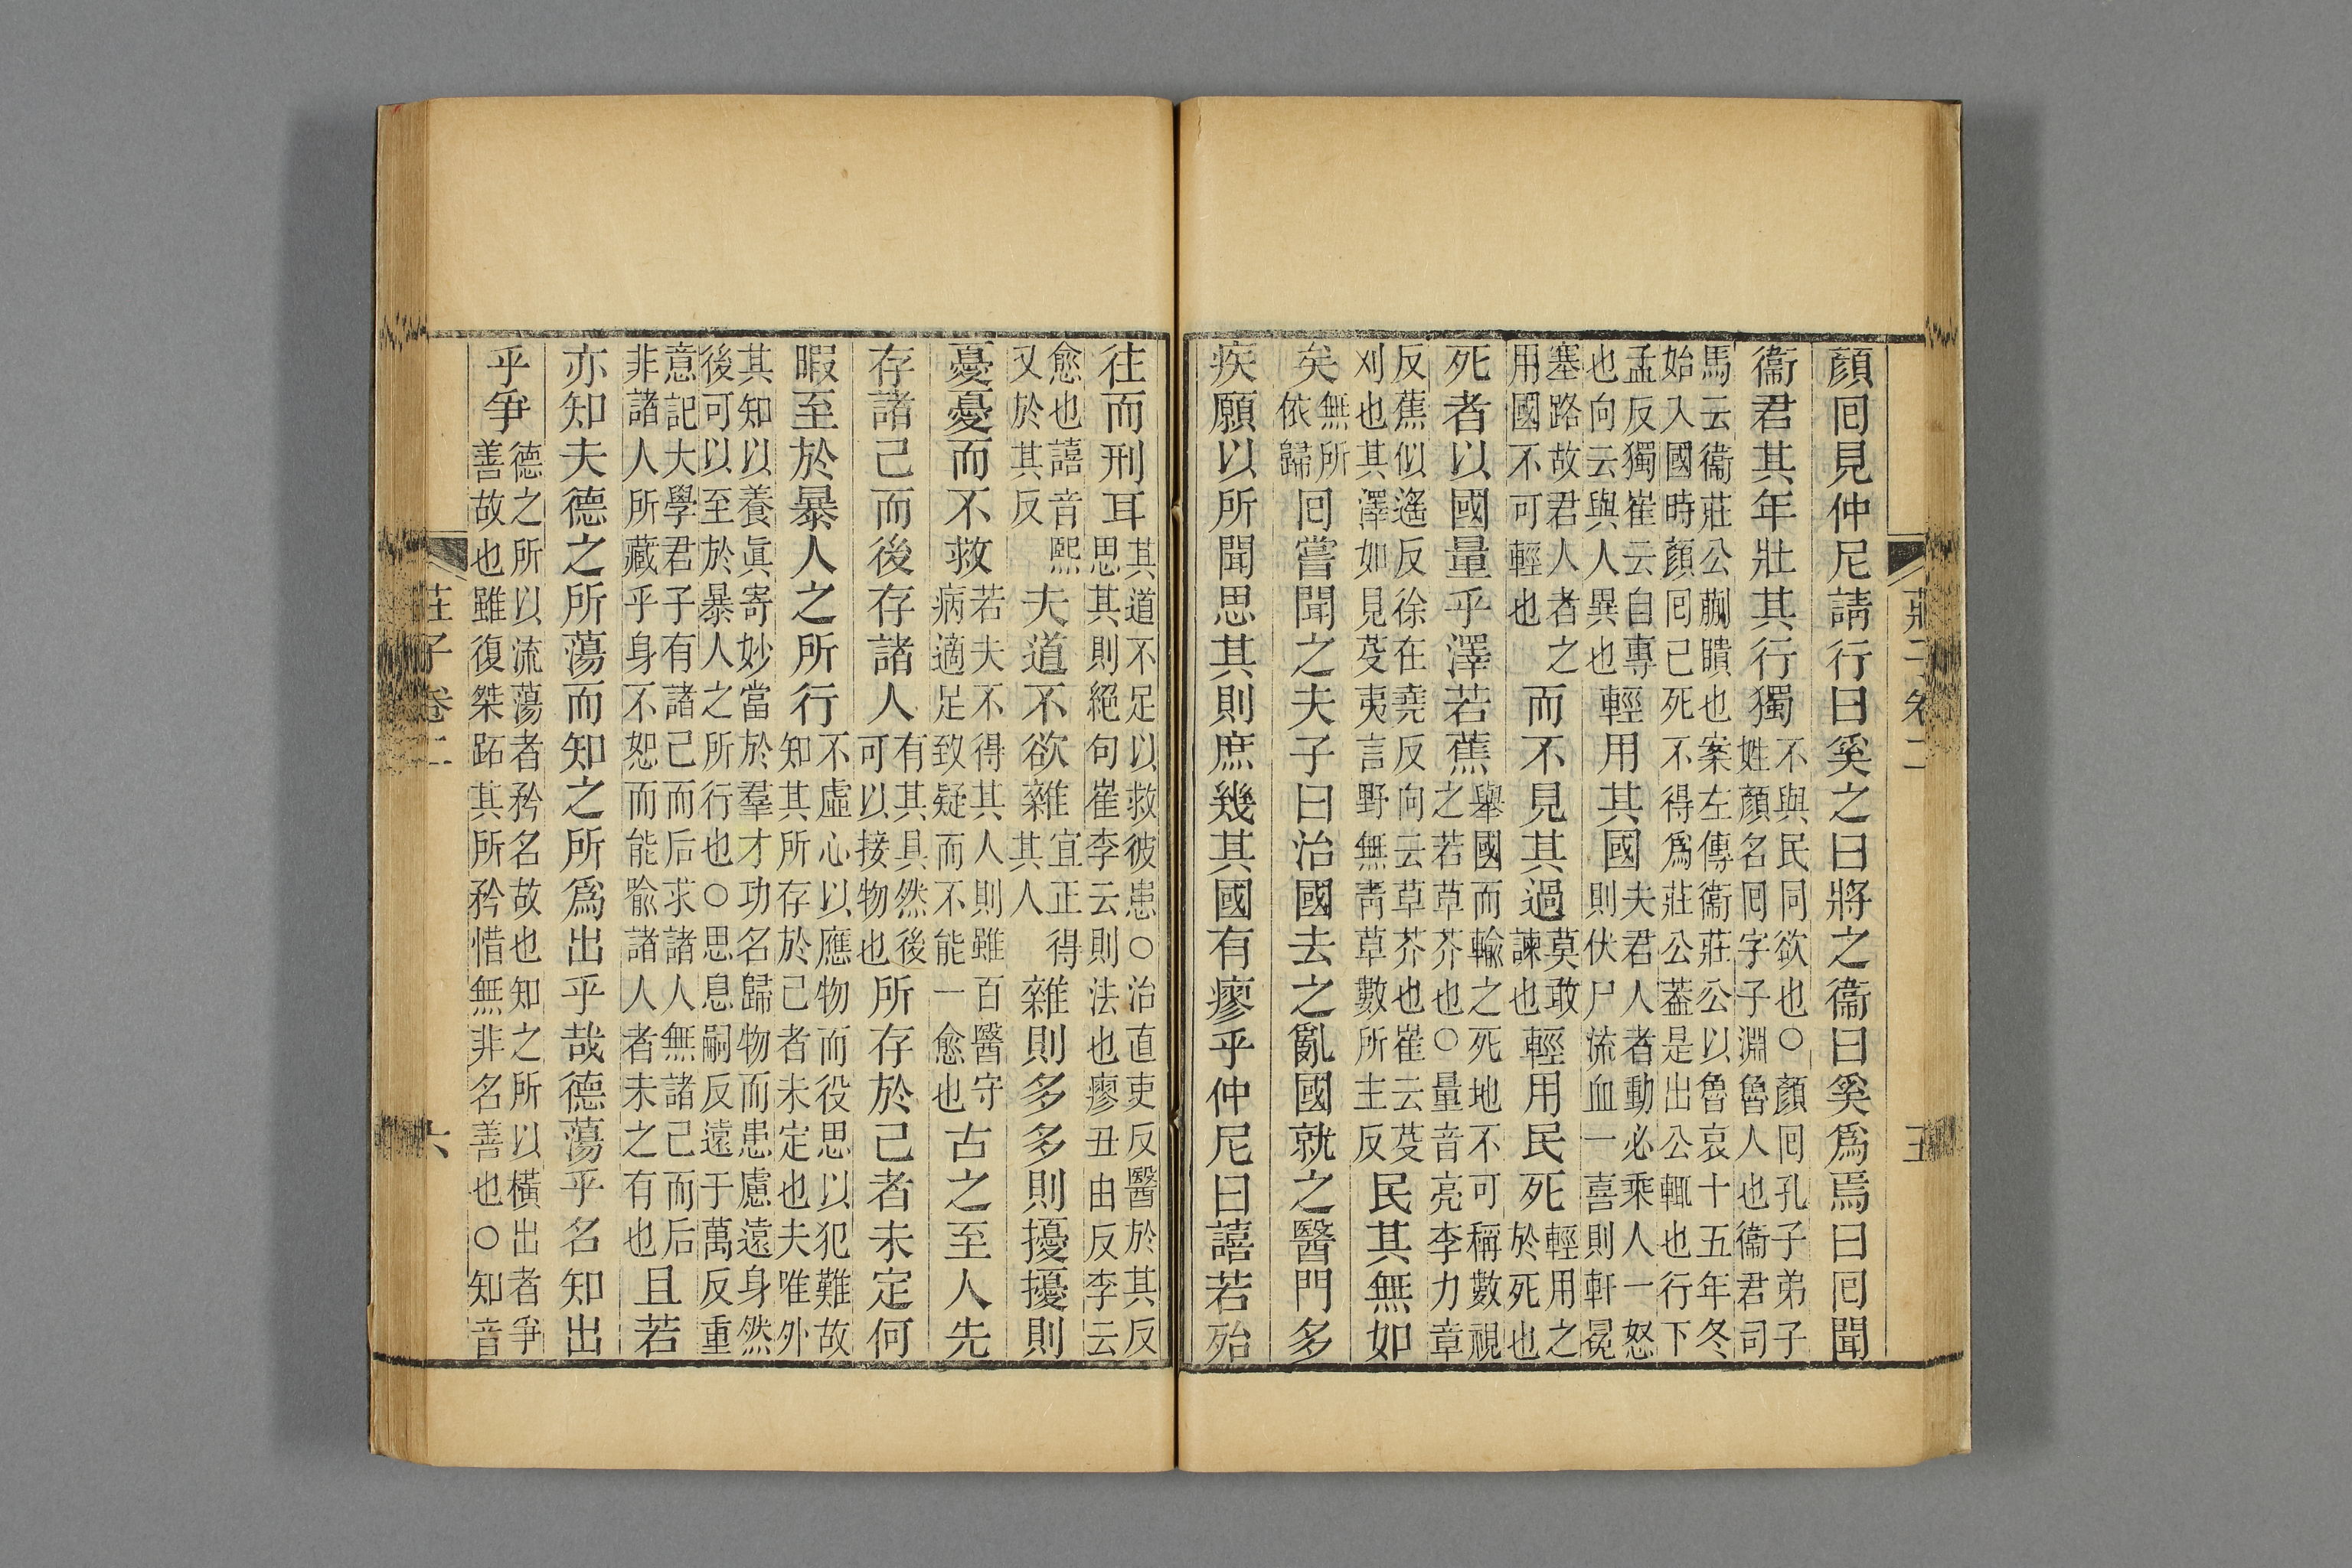 莊子卷二
五
顏囘見仲尼請行曰奚之曰將之衞曰奚爲焉曰囘聞
衞君其年壯其行獨不與民同欲也○顏囘孔子弟子姓顏名囘字子淵魯人也衞君司
馬云衞莊公蒯瞶也案左傳衞莊公以魯哀十五年冬始入國時顏囘已死不得爲莊公蓋是出公輒也行下
孟反獨崔云自專也向云與人異也輕用其國夫君人者動必乘人一怒則伏尸流血一喜則軒冕
塞路故君人者之用國不可輕也而不見其過莫敢諫也輕用民死輕用之於死也
死者以國量乎澤若蕉舉國而輸之死地不可稱數視之若草芥也○量音亮李力章
反蕉似遙反徐在堯反向云草芥也崔云芟刈也其澤如見芟夷言野無靑草數所主反民其無如
矣無所依歸囘嘗聞之夫子曰治國去之亂國就之醫門多
疾願以所聞思其則庶幾其國有瘳乎仲尼曰譆若殆
往而刑耳其道不足以救彼患○治直吏反醫於其反思其則絕句崔李云則法也瘳丑由反李云
愈也譆音熙又於其反夫道不欲雜宜正得其人雜則多多則擾擾則
憂憂而不救若夫不得其人則雖百醫守病適足致疑而不能一愈也古之至人先
存諸己而後存諸人有其具然後可以接物也所存於己者未定何
暇至於暴人之所行不虛心以應物而役思以犯難故知其所存於己者未定也夫唯外
其知以養眞寄妙當於羣才功名歸物而患慮遠身然後可以至於暴人之所行也○思息嗣反遠于萬反重
意記大學君子有諸己而后求諸人無諸己而后非諸人所藏乎身不恕而能喩諸人者未之有也且若
亦知夫德之所蕩而知之所爲出乎哉德蕩乎名知出
乎爭德之所以流蕩者矜名故也知之所以橫出者爭善故也雖復桀跖其所矜惜無非名善也○知音
莊子卷二
六